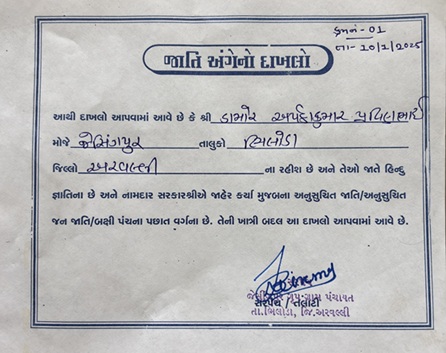 ક્રમનં - 01
તા - 20/1/2025
જાતિ અંગેનો દાખલો
આથી દાખલો આપવામાં આવે છે કે શ્રી ડામોર અર્પણકુમાર પ્રવિણભાઈ
મોજે જેસિંગપુર તાલુકો ભિલોડા
જિલ્લો અરવલ્લી ના રહીશ છે અને તેઓ જાતે હિન્દુ
જ્ઞાતિના છે અને નામદાર સરકારશ્રીએ જાહેર કર્યા મુજબના અનુસુચિત જાતિ/અનુસુચિત
જન જાતિ/બક્ષી પંચના પછાત વર્ગના છે. તેની ખાત્રી બદલ આ દાખલો આપવામાં આવે છે.
ગ્રુપ-ગ્રામ પંચાયત
સરપંચ / તલાટી
તા.ભિલોડા, જિ.અરવલ્લી